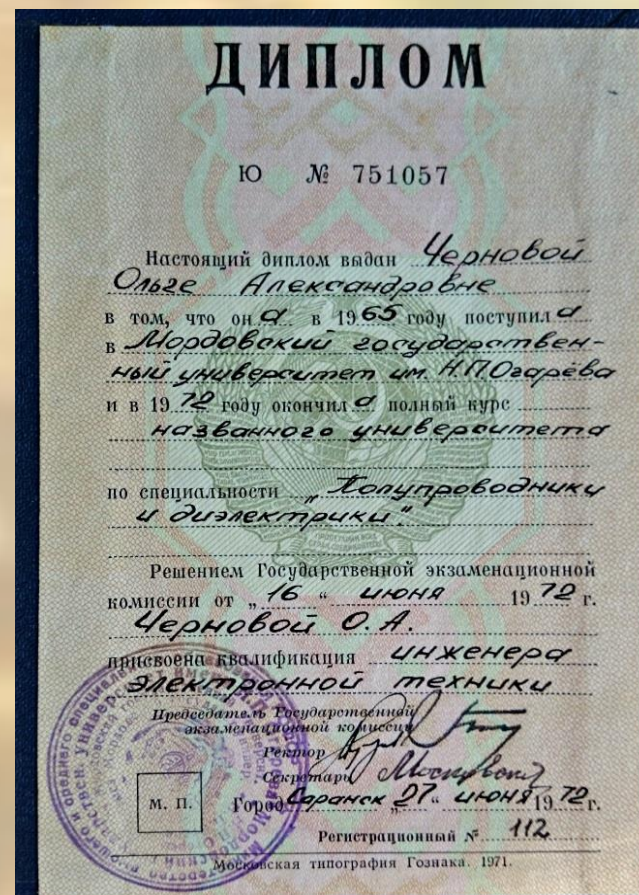 ДИПЛОМ
Ю № 751057
Настоящий диплом выдан Черновой
Ольге Александровне
в том, что он а в 1965 году поступил а
в Мордовский государствен-
ный университет им. Н.П.Огарёва
и в 1972 году окончил а полный курс
названного университета
по специальности „Полупроводники
и диэлектрики"
Решением Государственной экзаменационной
комиссии от „16" июня 1972 г.
Черновой О.А.
присвоена квалификация инженера
электронной техники
Председатель Государственной
экзаменационной комиссии
Ректор
Секретарь
М. П.
Город Саранск „27" июня 1972г.
Регистрационный № 112
Московская типография Гознака. 1971.